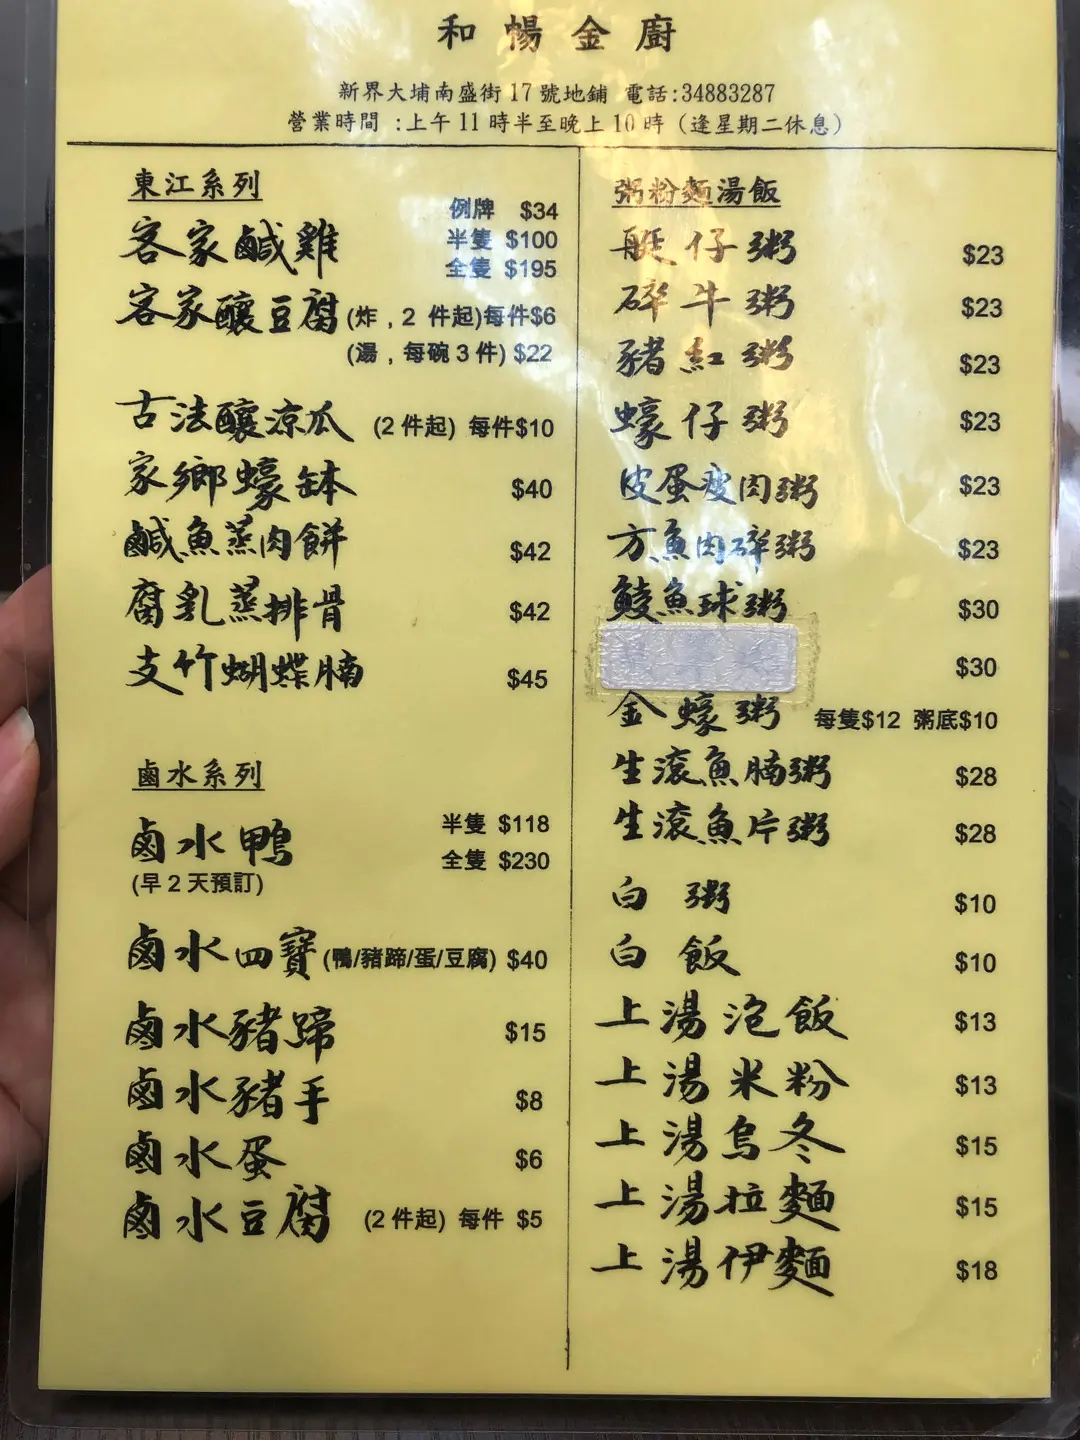 和暢金廚
新界大埔南盛街17號地鋪 電話:34883287
營業時間 :上午11時半至晚上10時 (逢星期二休息)
東江系列
客家鹹雞 例牌 $34
半隻 $100
全隻 $195
客家釀豆腐(炸，2 件起)每件$6
(湯，每碗3件) $22
古法釀涼瓜 (2件起) 每件$10
家鄉蠔缽 $40
鹹魚蒸肉餅 $42
腐乳蒸排骨 $42
支竹蝴蝶腩 $45
鹵水系列
鹵水鴨 半隻 $118
全隻 $230
(早2天預訂)
鹵水四寶(鴨/豬蹄/蛋/豆腐) $40
鹵水豬蹄 $15
鹵水豬手 $8
鹵水蛋 $6
鹵水豆腐 (2件起) 每件 $5
粥粉麵湯飯
艇仔粥 $23
碎牛粥 $23
豬紅粥 $23
蠔仔粥 $23
皮蛋瘦肉粥 $23
方魚肉碎粥 $23
鯪魚球粥 $30
$30
金蠔粥 每隻$12 粥底$10
生滾魚腩粥 $28
生滾魚片粥 $28
白粥 $10
白飯 $10
上湯泡飯 $13
上湯米粉 $13
上湯烏冬 $15
上湯拉麵 $15
上湯伊麵 $18